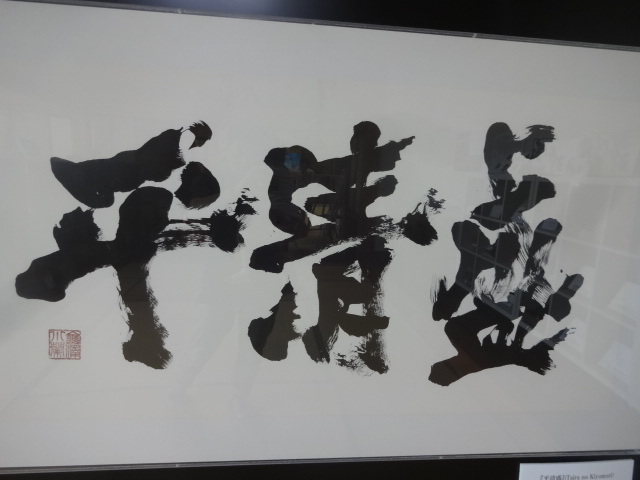 平清盛
『平清盛』(Taira no Kiyomori)